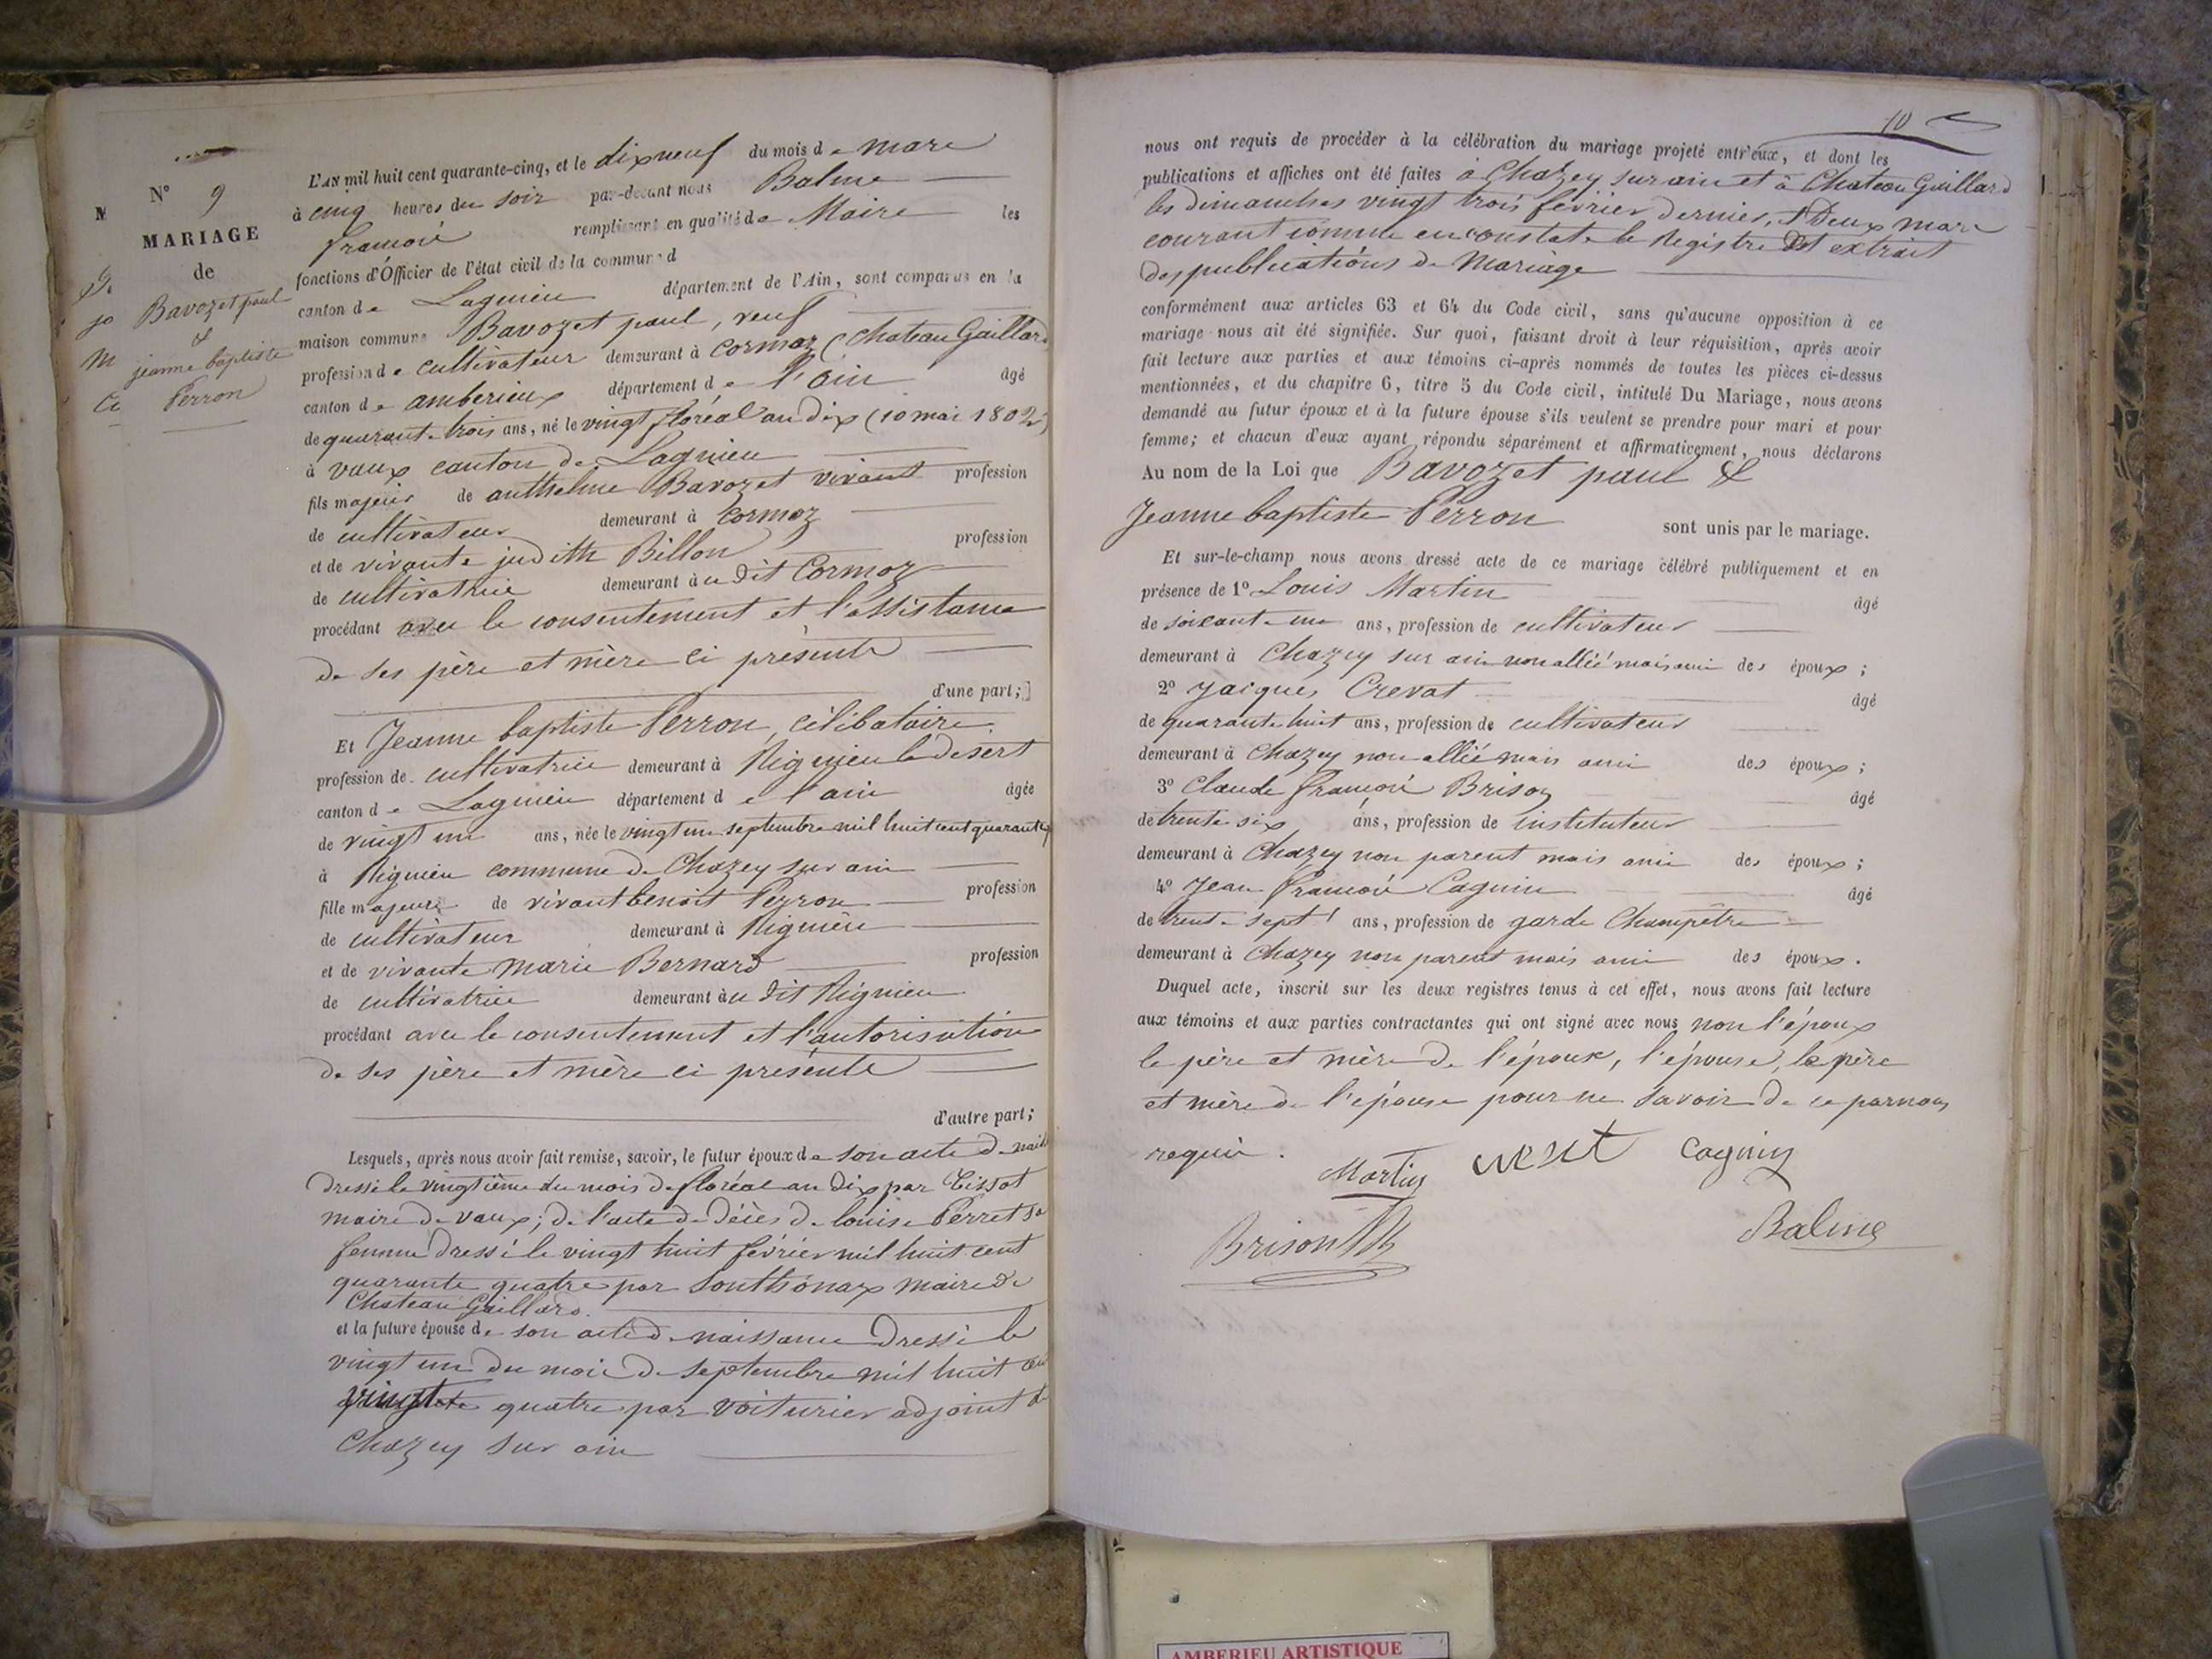 N° 9
MARIAGE
de
Bavozet paul
&
jeanne baptiste
Perron
L'AN mil huit cent quarante-cinq, et le dixneuf du mois de mars
à cinq heures du soir par-devant nous Balme
françois remplissant en qualité de Maire les
fonctions d'Officier de l'état civil de la commune d
canton de Lagnieu département de l'Ain, sont comparus en la
maison commune Bavozet paul, veuf
profession de cultivateur demeurant à cormoz (Chateau Gaillard
canton de amberieux département de l'ain âgé
de quarante trois ans, né le vingt floréal an dix (10 mai 1802)
à vaux canton de Lagnieu
fils majeur de anthelme Bavozet vivant profession
de cultivateur demeurant à cormoz
et de vivante judith Billon profession
de cultivatrice demeurant au dit Cormoz
procédant avec le consentement et l'assistance
de ses père et mère ci présents
d'une part;
Et Jeanne baptiste Perron, célibataire
profession de cultivatrice demeurant à Rignieu le desert
canton de Lagnieu département de l'ain âgée
de vingt un ans, née le vingt un septembre mil huit cent quarante
à Rignieu commune de Chazey sur ain
fille majeure de vivant benoit Perron profession
de cultivateur demeurant à Rignieu
et de vivante marie Bernard profession
de cultivatrice demeurant au dit Rignieu
procédant avec le consentement et l'autorisation
de ses père et mère ci présents
d'autre part;
Lesquels, après nous avoir fait remise, savoir, le futur époux de son acte de naiss
dressé le vingtième du mois de floréal an dix par Tissot
maire de vaux; de l'acte de décès de louise Perret sa
femme dressé le vingt huit février mil huit cent
quarante quatre par Southonax maire de
Chateau Gaillard.
et la future épouse de son acte de naissance dressé le
vingt un du mois de septembre mil huit cent
vingt quatre par voiturier adjoint de
Chazey sur ain
10
nous ont requis de procéder à la célébration du mariage projeté entr'eux, et dont les
publications et affiches ont été faites à Chazey sur ain et à Chateau Gaillard
les dimanches vingt trois février dernier, & Deux mars
courant comme en constate le Registre et extrait
des publications de Mariage
conformément aux articles 63 et 64 du Code civil, sans qu'aucune opposition à ce
mariage nous ait été signifiée. Sur quoi, faisant droit à leur réquisition, après avoir
fait lecture aux parties et aux témoins ci-après nommés de toutes les pièces ci-dessus
mentionnées, et du chapitre 6, titre 5 du Code civil, intitulé Du Mariage, nous avons
demandé au futur époux et à la future épouse s'ils veulent se prendre pour mari et pour
femme; et chacun d'eux ayant répondu séparément et affirmativement, nous déclarons
Au nom de la Loi que Bavozet paul &
Jeanne baptiste Perron sont unis par le mariage.
Et sur-le-champ nous avons dressé acte de ce mariage célébré publiquement et en
présence de 1° Louis Martin âgé
de soixante un ans, profession de cultivateur
demeurant à Chazey sur ain non allié mais ami des époux;
2° Jacques Crevat âgé
de quarante huit ans, profession de cultivateur
demeurant à Chazey non allié mais ami des époux;
3° Claude françois Brison âgé
de trente six ans, profession de instituteur
demeurant à Chazey non parent mais ami des époux;
4° Jean françois Cagnin âgé
de trente sept ans, profession de garde Champêtre
demeurant à Chazey non parent mais ami des époux.
Duquel acte, inscrit sur les deux registres tenus à cet effet, nous avons fait lecture
aux témoins et aux parties contractantes qui ont signé avec nous non l'époux
le père et mère de l'époux, l'épouse, le père
et mère de l'épouse pour ne savoir de ce par nous
requis.
Martin Cagnin
Brison Balme
AMBERIEU ARTISTIQUE